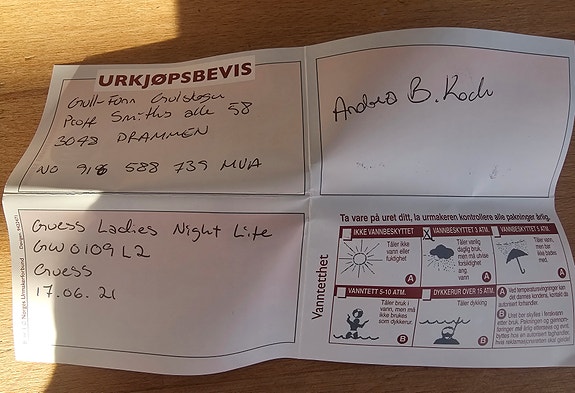 URKJØPSBEVIS
Gull-Fann Gulskogen
Proff Smiths alle 58
3048 DRAMMEN
NO 918 588 739 MVA
Andrea B. Koch
Guess Ladies Night Life
GW0109L2
Guess
17.06.21
Norges Urmakerforbund
Ta vare på uret ditt, la urmakeren kontrollere alle pakninger årlig.
Vanntetthet
IKKE VANNBESKYTTET
Tåler ikke vann eller fuktighet
A
VANNBESKYTTET 3 ATM.
Tåler vanlig daglig bruk, men må utvise forsiktighet ang vann
A
VANNBESKYTTET 5 ATM.
Tåler vann, men bør ikke bades med.
A
VANNTETT 5-10 ATM.
Tåler bruk i vann, men må ikke brukes som dykkerur.
B
DYKKERUR OVER 15 ATM.
Tåler dykking
B
A Ved temperatursvingninger kan det dannes kondens, kontakt da autorisert forhandler.
B Uret bør skylles i ferskvann etter bruk. Pakningen og gjennomføringer må årlig ettersees og evnt. byttes hos en autorisert faghandler, hvis reklamasjonsretten skal gjelde!